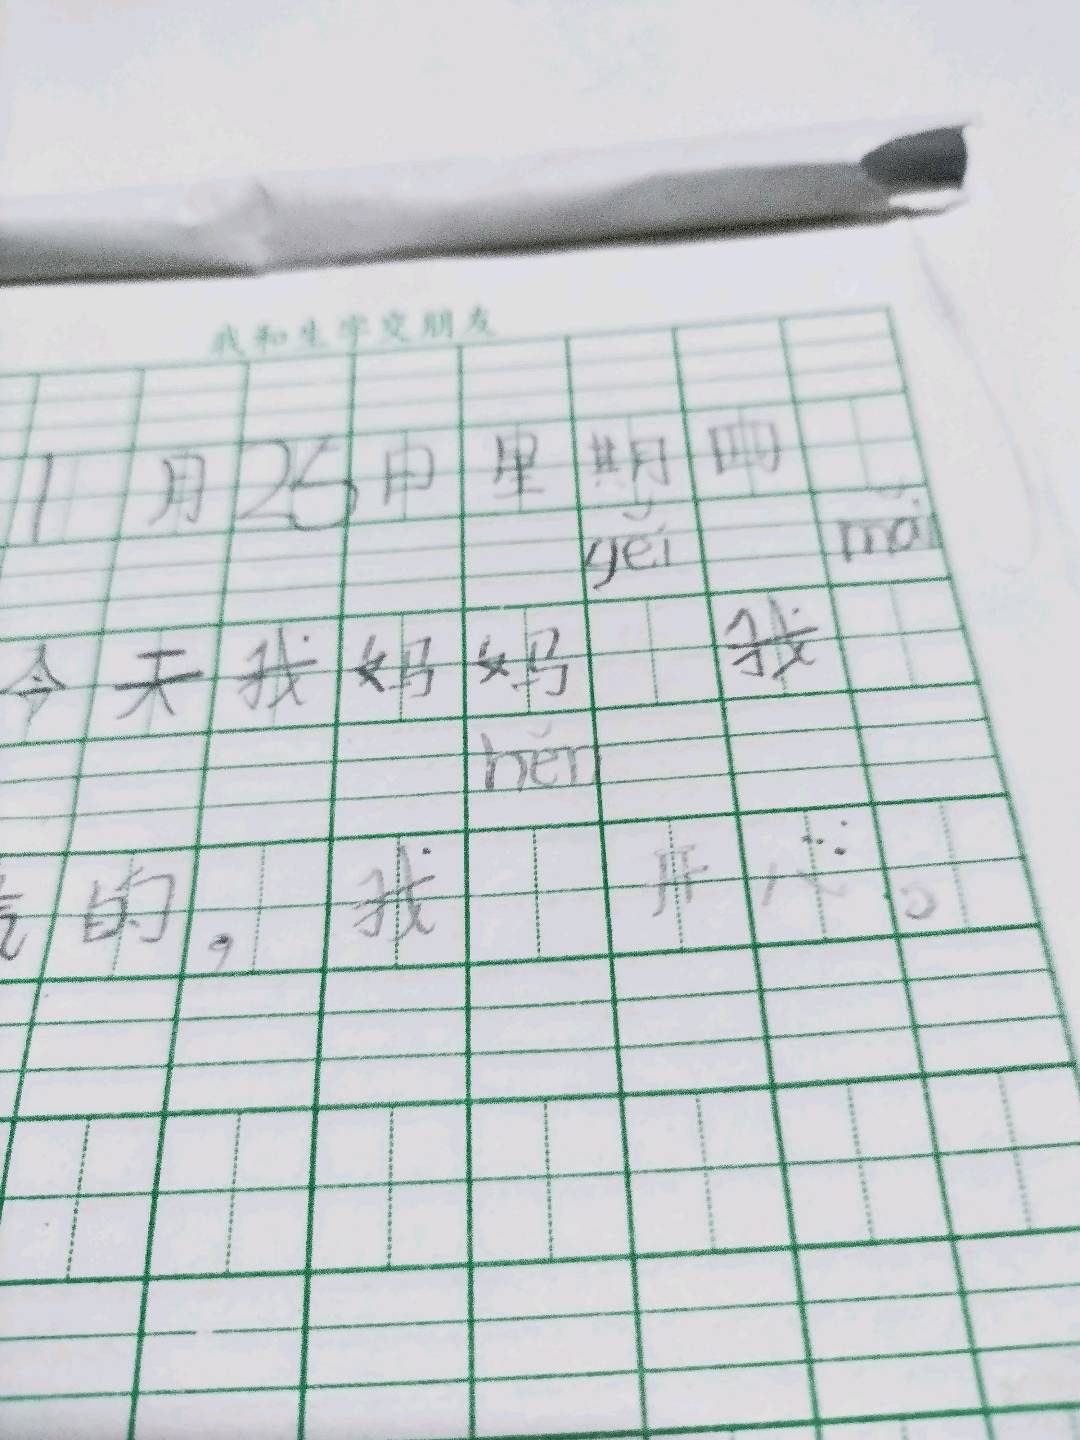 我和生字交朋友
1月25日星期四
yěi mǎi
今天我妈妈 我
hěn
的,我 开心。